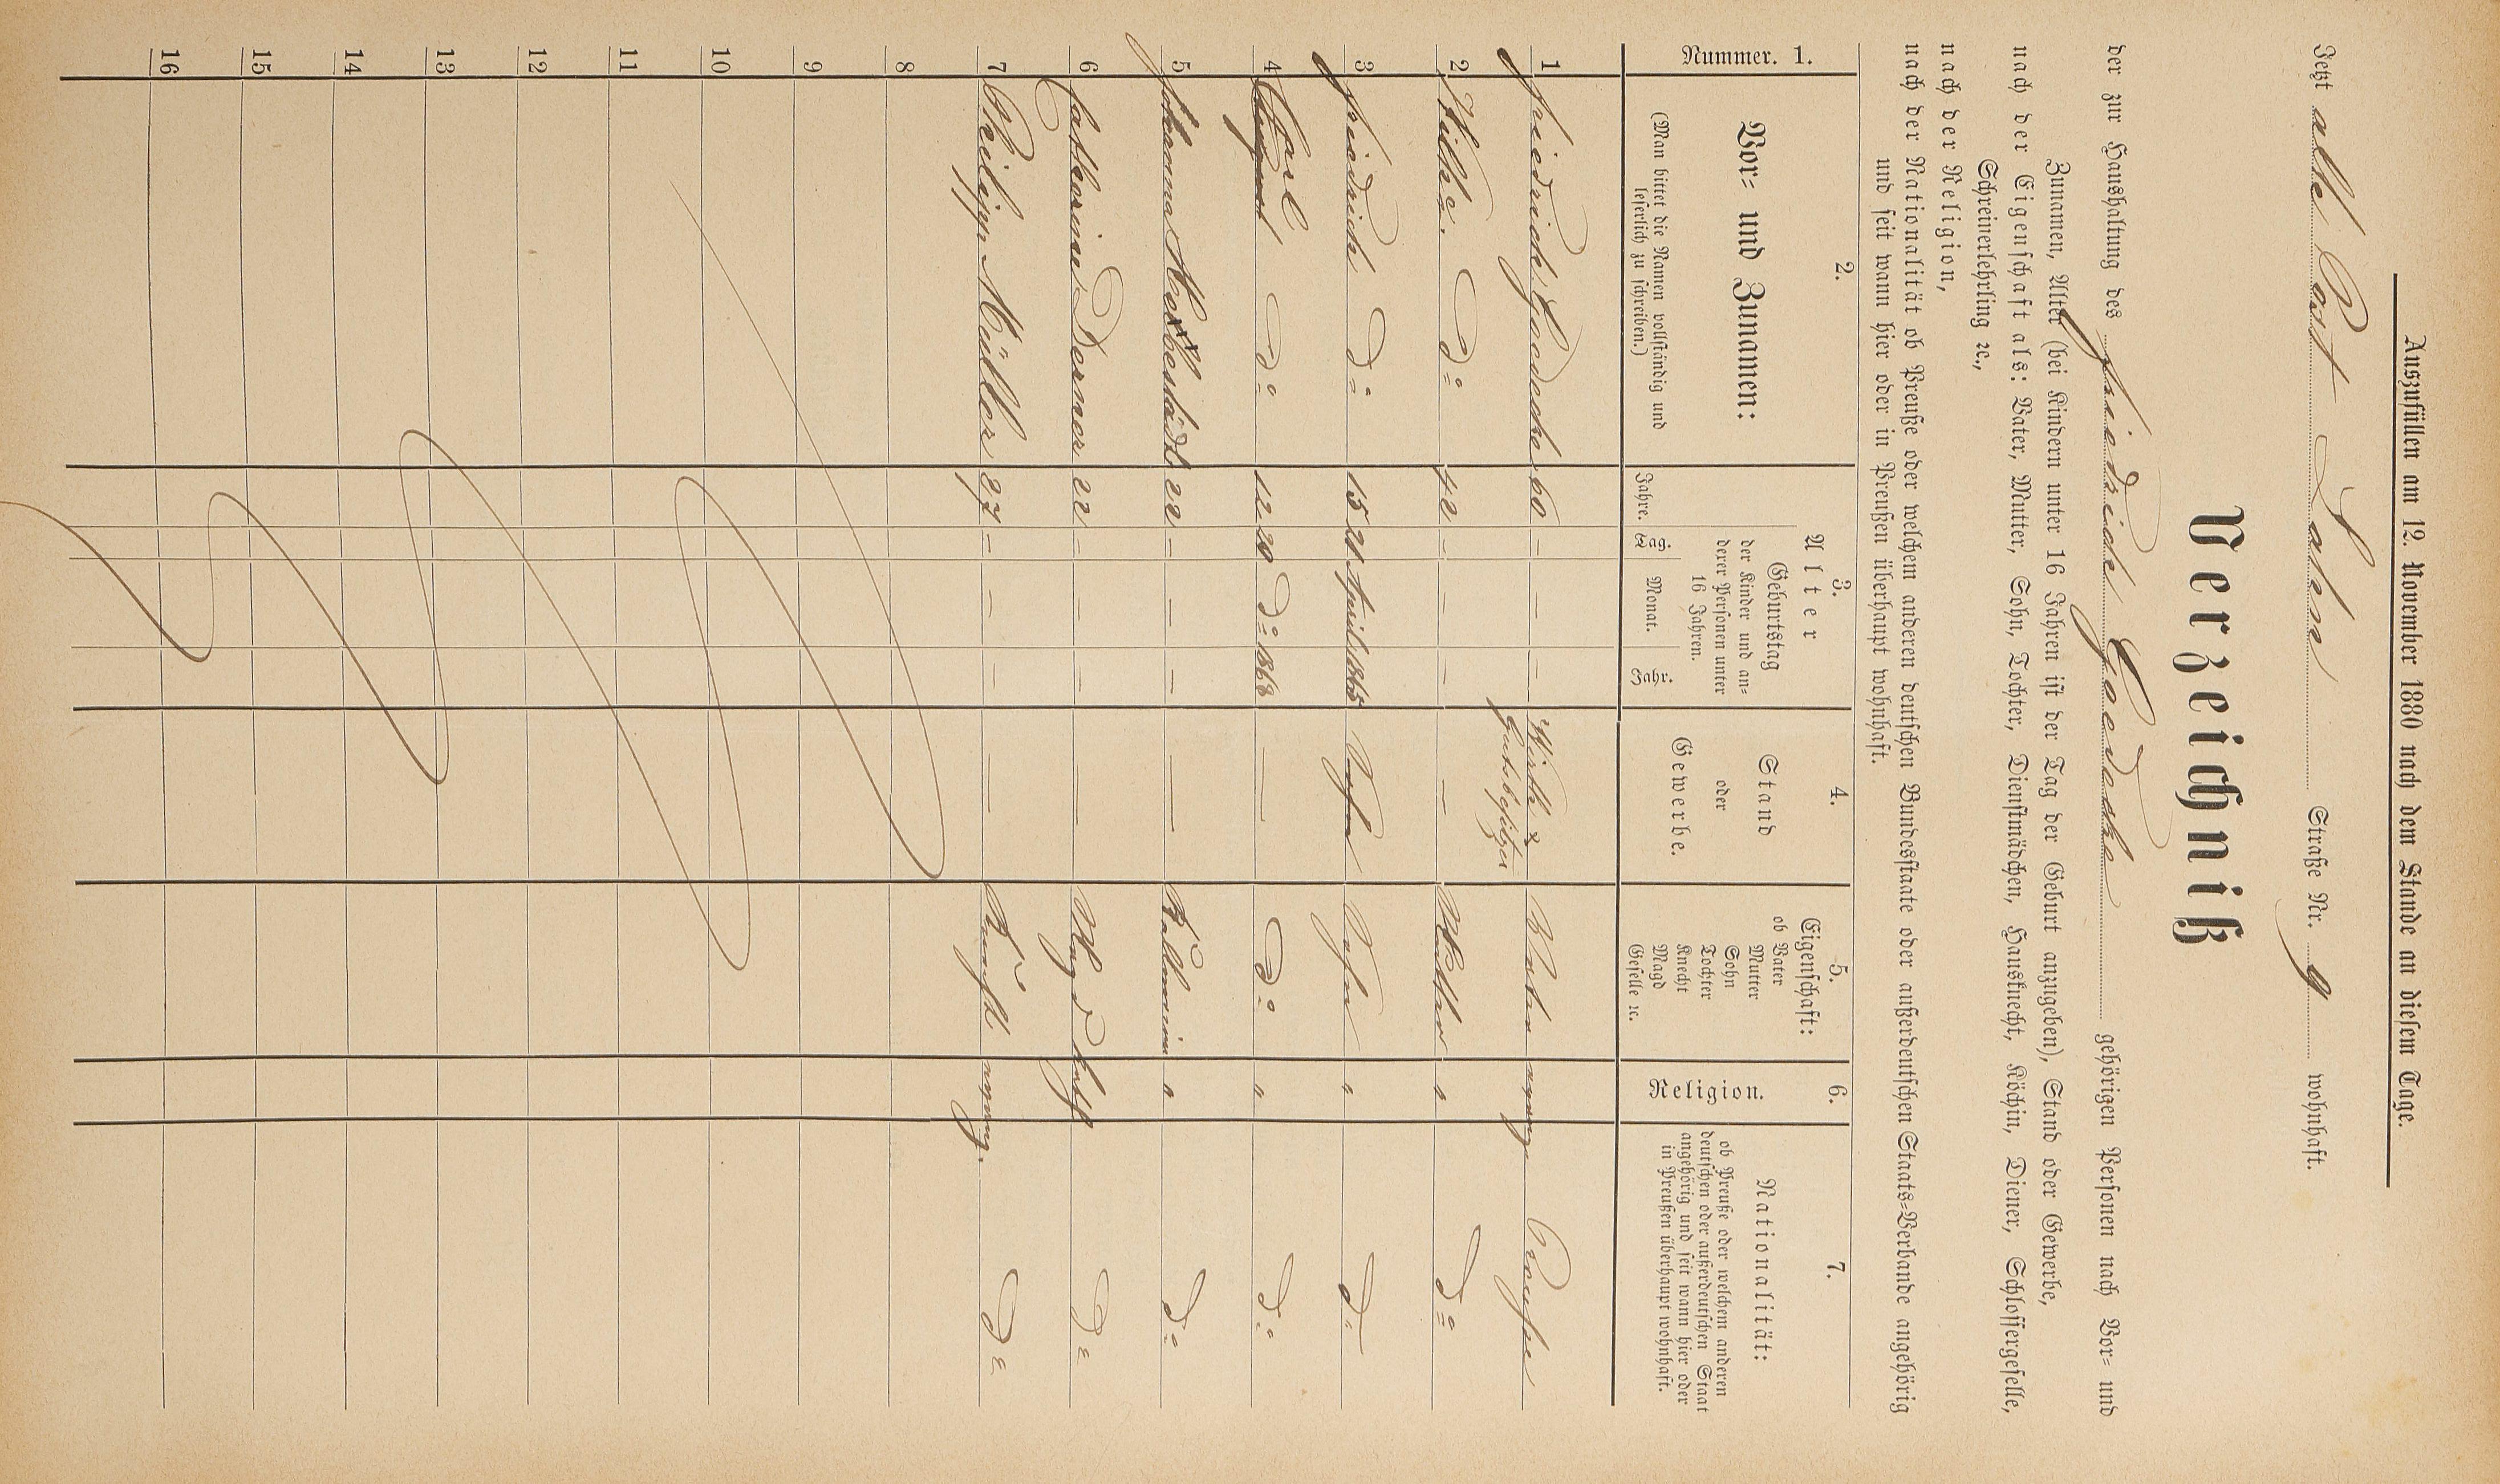 Auszufüllen am 12. November 1880 nach dem Stande an diesem Tage.
Jetzt alte Post Lahn Straße Nr. 9 wohnhaft.
Verzeichniß
der zur Haushaltung des Friedrich Goedecke gehörigen Personen nach Vor- und
Zunamen, Alter (bei Kindern unter 16 Jahren ist der Tag der Geburt anzugeben), Stand oder Gewerbe,
nach der Eigenschaft als: Vater, Mutter, Sohn, Tochter, Dienstmädchen, Hausknecht, Köchin, Diener, Schlossergeselle,
Schreinerlehrling ꝛc.,
nach der Religion,
nach der Nationalität ob Preuße oder welchem anderen deutschen Bundesstaate oder außerdeutschen Staats-Verbande angehörig
und seit wann hier oder in Preußen überhaupt wohnhaft.
Nummer. 1.
2.
Vor- und Zunamen:
(Man bittet die Namen vollständig und
leserlich zu schreiben.)
3.
Alter
Jahre.
Geburtstag
der Kinder und an-
derer Personen unter
16 Jahren.
Tag. Monat. Jahr.
4.
Stand
oder
Gewerbe.
5.
Eigenschaft:
ob Vater
Mutter
Sohn
Tochter
Knecht
Magd
Geselle ꝛc.
6.
Religion.
7.
Nationalität:
ob Preuße oder welchem anderen
deutschen oder außerdeutschen Staat
angehörig und seit wann hier oder
in Preußen überhaupt wohnhaft.
1 Friedrich Goedecke 60 – – – Wirth & Gutsbesitzer Vater evang Preuße
2 Wilhe. do 42 – – – – Mutter " do
3 Friedrich do 15 21 April 1865 Sohn Sohn " do
4 Carl do 12 20 do 1868 — do " do
5 Johanna 22 – – – — Kellnerin " do
6 Catharina Dorner 22 – – – — Magd kath do
7 Philipp Müller 27 – – – — Knecht evang. do
8
9
10
11
12
13
14
15
16